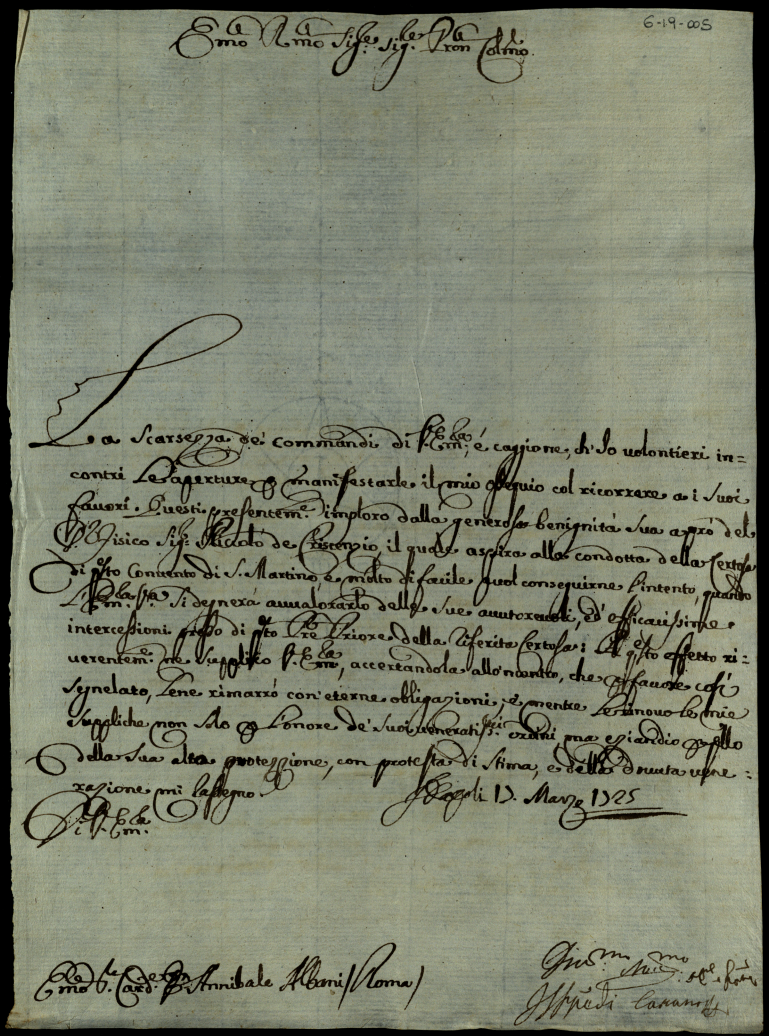 6-19-005
Em̃o Rm̃o Sig.re Sig.re Pron Colm̃o
La Scarsezza de' commandi di V. Em.za, é caggione, ch'Io volontieri in=
contri Le aperture p manifestarle il mio ossequio col ricorrere a i suoi
favori. Questi presentem.e imploro dalla generosa benignitá Sua a pró del
Fisico Sig.r Niccoló de Crescenzio, il quale aspira alla condotta della Certosa
di q̃sto Convento di S. Martino, e molto di facile puol conseguirne l'intento, quando
V. Em.za Si degnerá avvalorarlo delle Sue auutoreuoli, ed' efficacissime
intercessioni presso di q̃sto Pre Priore della riferita Certosa; Al q̃sto effetto ri=
uerentem.e ne Supplico V. Em.za, accertandola allo'ncontro, che p favore cosí
segnelato, Lene rimarró con'eterne obligazioni; e mentre Le rinovo le mie
Suppliche non solo p L'onore de' Suoi veneratiss.mi ordini, ma eziandio p q̃llo
della Sua alta protezzione, con protesta di Stima, e della dovuta vene=
razione mi rassegno.
Napoli 17. Marzo 1725
Di V. Em.za
Em̃o S.r Card.le Annibale Albani (Roma)